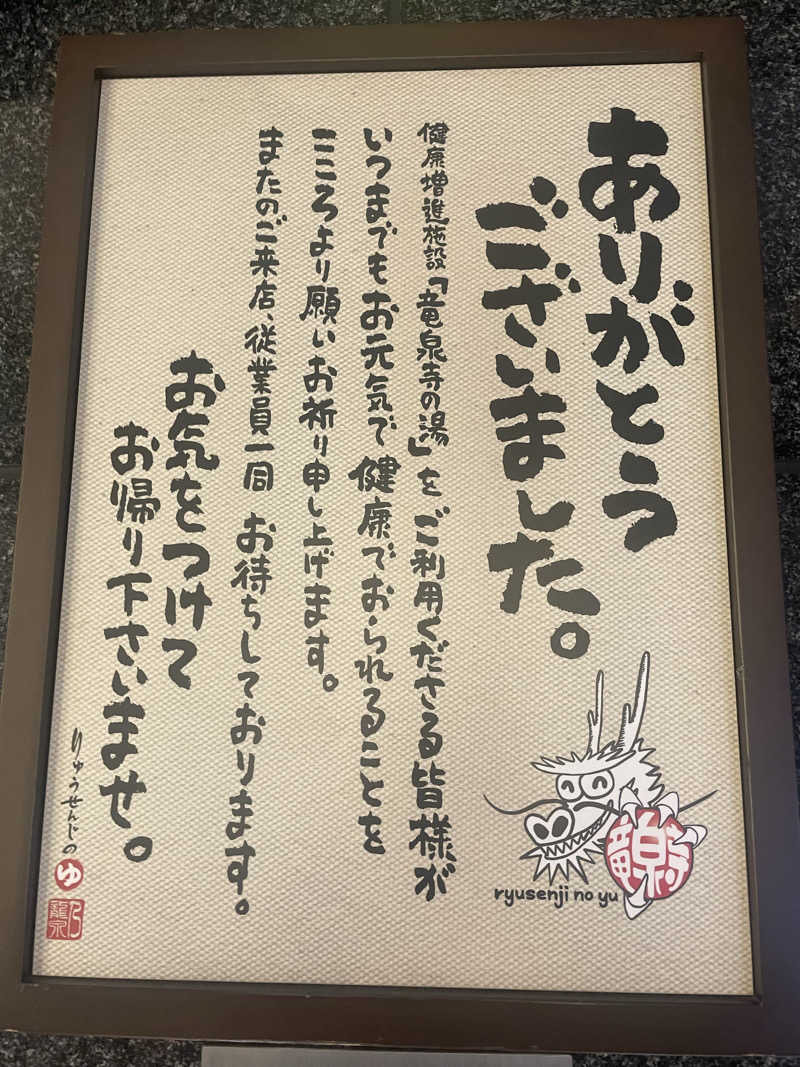 ありがとう
ございました。
健康増進施設「竜泉寺の湯」を ご利用くださる皆様が
いつまでもお元気で健康でおられることを
こころより願いお祈り申し上げます。
またのご来店、従業員一同 お待ちしております。
お気をつけて
お帰り下さいませ。
りゅうせんじの
ゆ
竜泉寺
ryusenji no yu